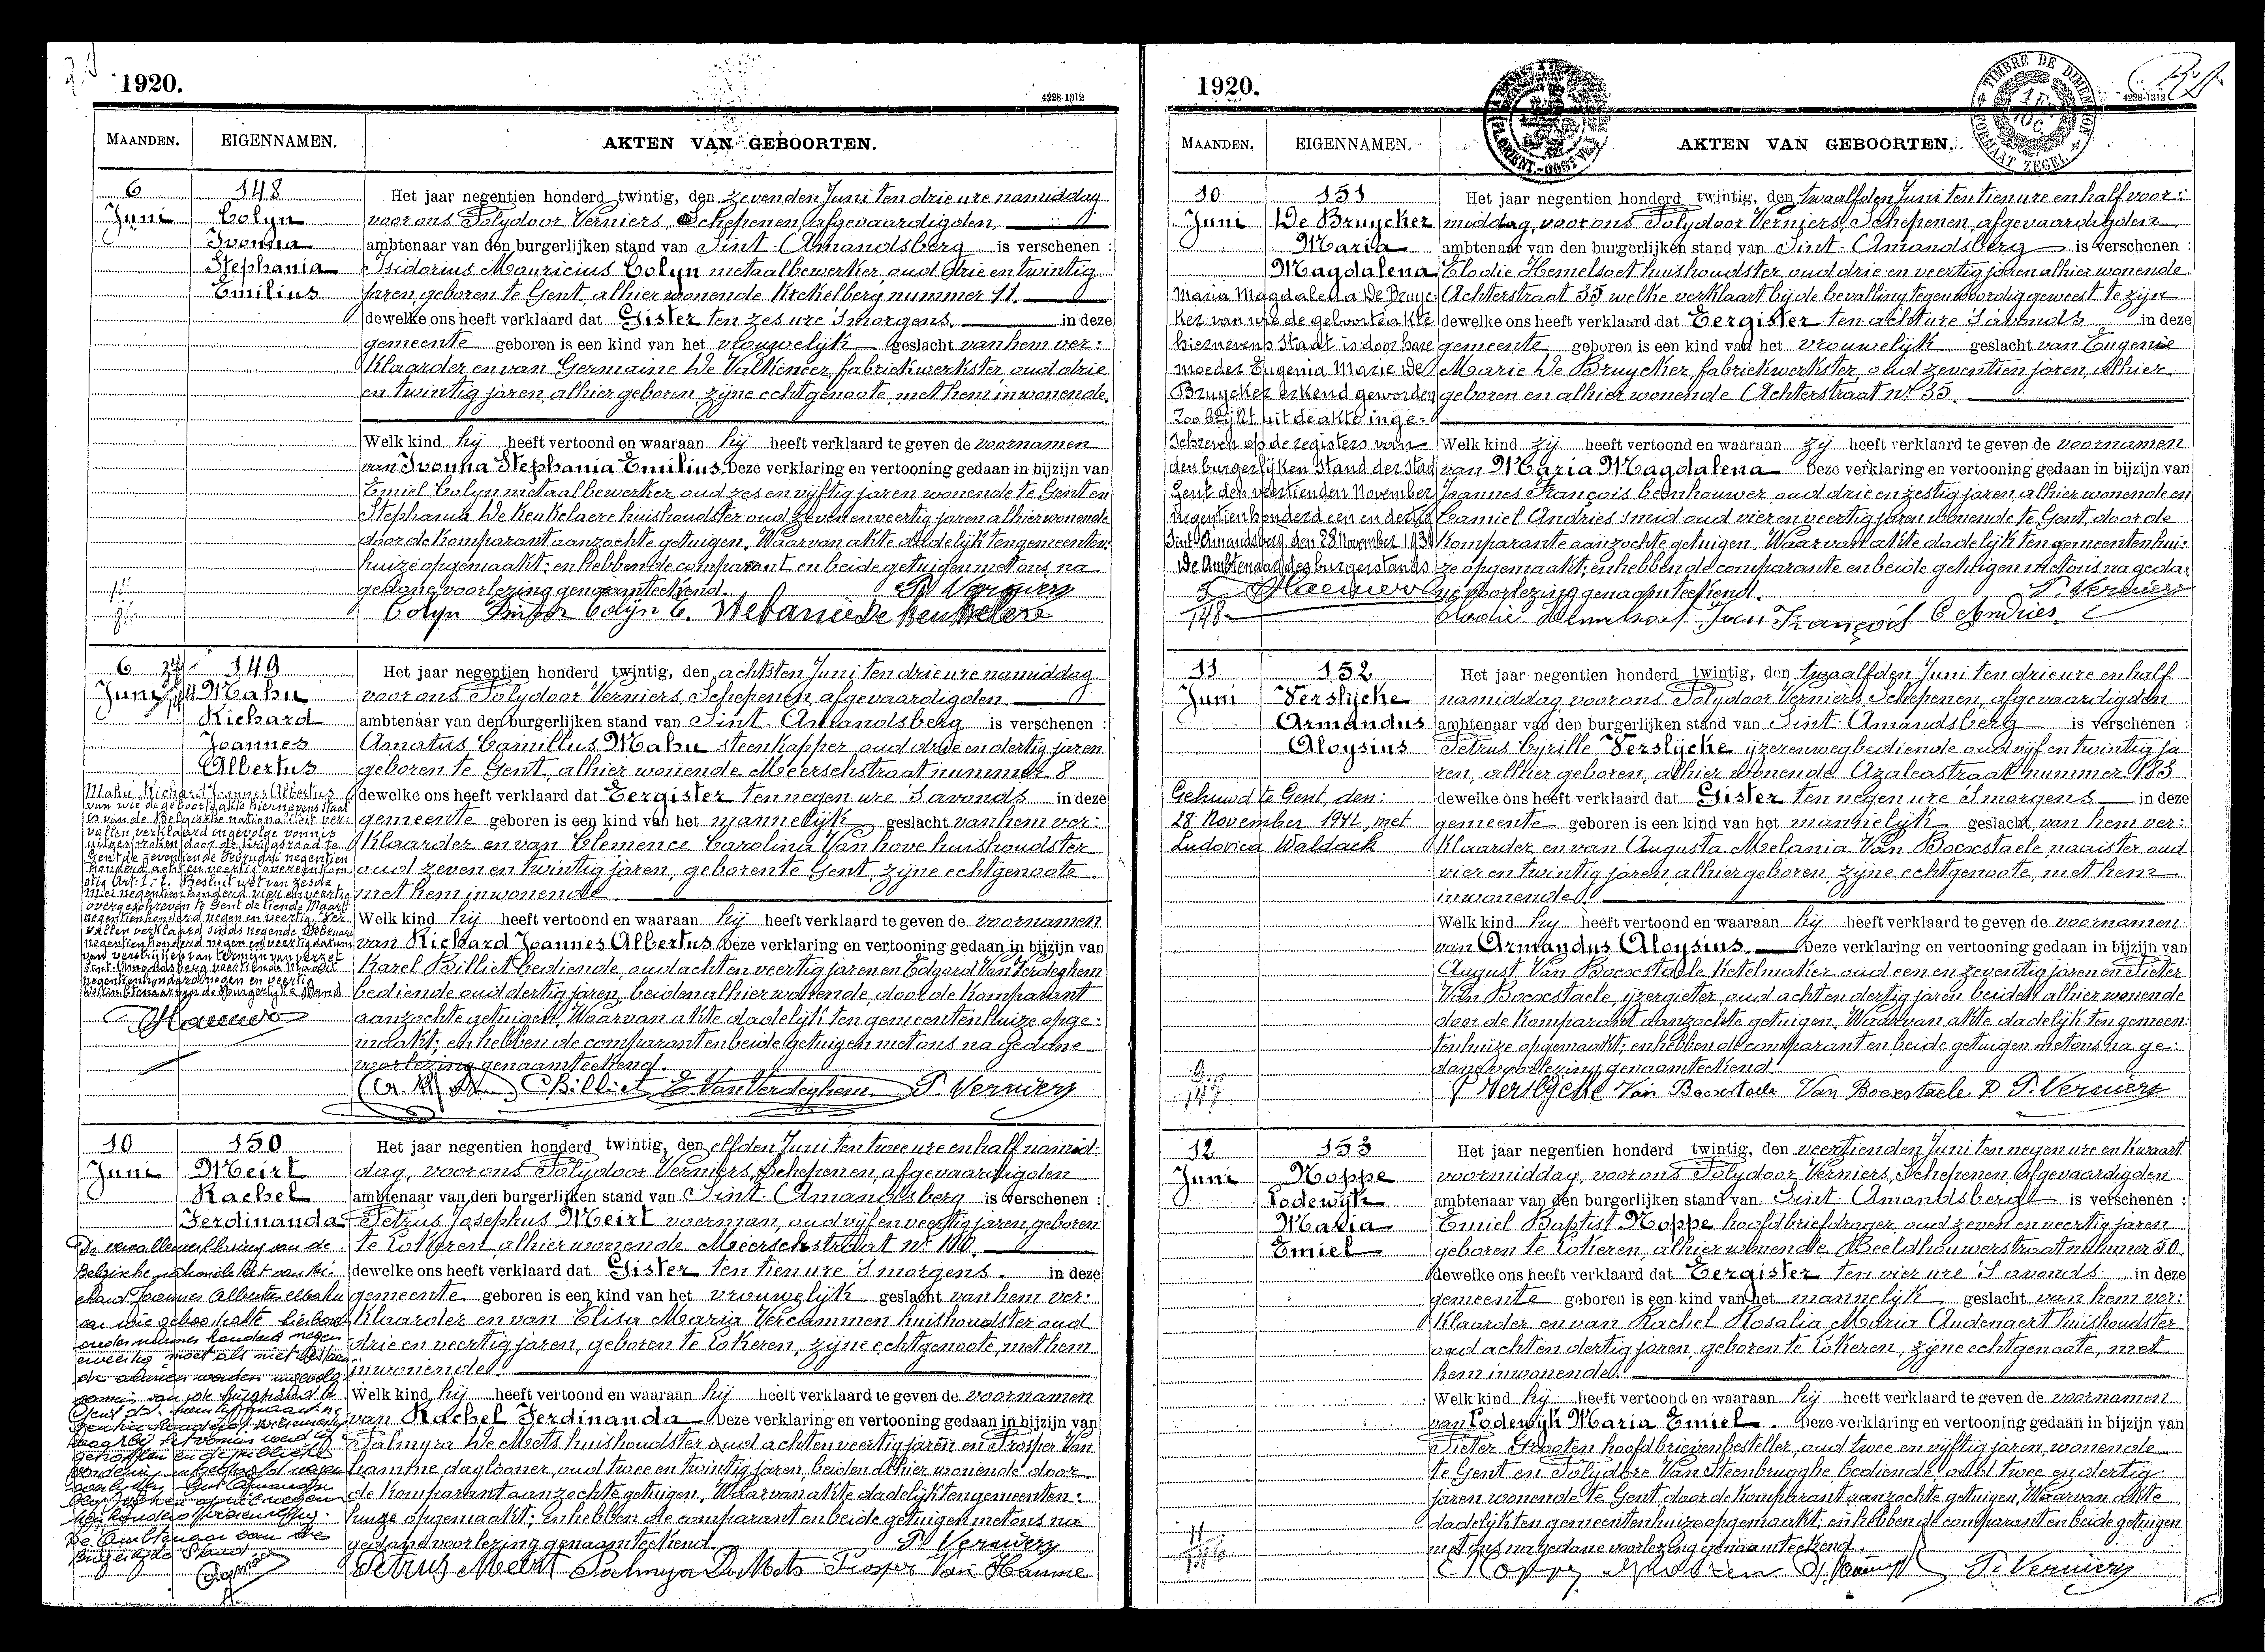 1920.
4228-1312
MAANDEN. EIGENNAMEN. AKTEN VAN GEBOORTEN.
6
Juni
148
Colyn
Ivonna
Stephania
Emilius
Het jaar negentien honderd twintig, den zevenden Juni ten drie ure namiddag
voor ons Polydoor Verniers, Schepenen, afgevaardigden,
ambtenaar van den burgerlijken stand van Sint-Amandsberg is verschenen :
Isidorius Mauricius Colyn metaalbewerker oud drie en twintig
jaren, geboren te Gent, alhier wonende Krekelberg nummer 11.
dewelke ons heeft verklaard dat Gister ten zes ure 's morgens. in deze
gemeente geboren is een kind van het vrouwelijk geslacht van hem ver:
klaarder en van Germaine De Valkeneer, fabriekwerkster oud drie
en twintig jaren, alhier geboren, zijne echtgenoote, met hem inwonende.
Welk kind hij heeft vertoond en waaraan hij heeft verklaard te geven de voornamen
van Ivonna Stephania Emilius. Deze verklaring en vertooning gedaan in bijzijn van
Emiel Colyn metaalbewerker oud zes en vijftig jaren wonende te Gent en
Stephania De Keukelaere huishoudster oud zeven en veertig jaren alhier wonende
door de komparant aanzochte getuigen. Waarvan akte dadelijk ten gemeenten:
huize opgemaakt; en hebben de comparant en beide getuigen met ons na
gedane voorlezing genaamteekend.
P. Verniers
Colyn Colyn E. Stefanie De Keukelere
6
Juni
149
Mahu
Richard
Joannes
Albertus
Mahu Richard Joannes Albertus
van wie de geboorteakte hiernevens staat
is van de Belgische nationaliteit ver:
vallen verklaard ingevolge vonnis
uitgesproken door de krijgsraad te
Gent de zeventiende Februari negentien
honderd acht en veertig overeenkom:
stig Art. 1-2. Besluit wet van zesde
Mei negentienhonderd vier en veertig
overgeschreven te Gent de tiende Maart
negentienhonderd negen en veertig. Ver
vallen verklaard sinds negende Februari
negentienhonderd negen en veertig datum
van verstrijken van termijn van verzet
Sint-Amandsberg veertiende Maart
negentienhonderd negen en veertig
De Ambtenaar van de Burgerlijke Stand
Het jaar negentien honderd twintig, den achtsten Juni ten drie ure namiddag
voor ons Polydoor Verniers, Schepenen, afgevaardigden
ambtenaar van den burgerlijken stand van Sint-Amandsberg is verschenen :
Amatus Camillus Mahu steenkapper oud drie en dertig jaren
geboren te Gent, alhier wonende Meerschstraat nummer 8
dewelke ons heeft verklaard dat Eergister ten negen ure 's avonds in deze
gemeente geboren is een kind van het mannelijk geslacht van hem ver:
klaarder en van Clemence Carolina Vanhove huishoudster
oud zeven en twintig jaren, geboren te Gent, zijne echtgenoote
met hem inwonende
Welk kind hij heeft vertoond en waaraan hij heeft verklaard te geven de voornamen
van Richard Joannes Albertus Deze verklaring en vertooning gedaan in bijzijn van
Karel Billiet bediende, oud acht en veertig jaren en Edgard Van Verdeghem
bediende oud dertig jaren, beiden alhier wonende, door de komparant
aanzochte getuigen. Waarvan akte dadelijk ten gemeentenhuize opge:
maakt; en hebben de comparant en beide getuigen met ons na gedane
voorlezing genaamteekend.
C Billiet E Van Verdeghem P. Verniers
10
Juni
150
Meirt
Rachel
Ferdinanda
De vervallenverklaring van de
Belgische nationaliteit van Ri-
chard Joannes Albertus Mahu
van wie geboorteakte hierboven
onder nummer honderd negen
enveertig moet als niet bestaan
de aanzien worden ingevolge
vonnis van de krijgsraad te
De Ambtenaar van de
Burgerlijke Stand
Het jaar negentien honderd twintig, den elfden Juni ten twee ure en half namid:
dag, voor ons Polydoor Verniers, Schepenen, afgevaardigden
ambtenaar van den burgerlijken stand van Sint-Amandsberg is verschenen :
Petrus Josephus Meirt voerman, oud vijf en veertig jaren, geboren
te Lokeren, alhier wonende Meerschstraat nr 100.
dewelke ons heeft verklaard dat Gister ten tien ure 's morgens. in deze
gemeente geboren is een kind van het vrouwelijk geslacht van hem ver:
klaarder en van Elisa Maria Vercammen huishoudster oud
drie en veertig jaren, geboren te Lokeren, zijne echtgenoote, met hem
inwonende.
Welk kind hij heeft vertoond en waaraan hij heeft verklaard te geven de voornamen
van Rachel Ferdinanda Deze verklaring en vertooning gedaan in bijzijn van
Palmyra De Mets huishoudster oud acht en veertig jaren en Prosper Van
Hamme daglooner, oud twee en twintig jaren, beiden alhier wonende door
de komparant aanzochte getuigen. Waarvan akte dadelijk ten gemeenten:
huize opgemaakt; en hebben de comparant en beide getuigen met ons na
gedane voorlezing genaamteekend.
P. Verniers
Petrus Meirt Palmyra De Mets Prosper Van Hamme
1920.
4228-1312
TIMBRE DE DIMENSION
FORMAAT ZEGEL
MAANDEN. EIGENNAMEN. AKTEN VAN GEBOORTEN.
10
Juni
151
De Bruycker
Maria
Magdalena
Maria Magdalena De Bruyc:
ker van wie de geboorteakte
hiernevens staat is door hare
moeder Eugenia Marie De
Bruycker erkend geworden
Zoo blijkt uit de akte inge-
schreven op de registers van
den burgerlijken Stand der stad
Gent den veertienden November
negentienhonderd een en dertig
Sint-Amandsberg, den 28 November 1931
De Ambtenaar des burgerstands
148
Het jaar negentien honderd twintig, den twaalfden Juni ten tien ure en half voor:
middag, voor ons Polydoor Verniers, Schepenen, afgevaardigden
ambtenaar van den burgerlijken stand van Sint-Amandsberg is verschenen :
Elodie Hemelsoet huishoudster oud drie en veertig jaren alhier wonende
Achterstraat 35 welke verklaart bij de bevalling tegenwoordig geweest te zijn
dewelke ons heeft verklaard dat Eergister ten acht ure 's avonds in deze
gemeente geboren is een kind van het vrouwelijk geslacht van Eugenie
Marie De Bruycker, fabriekwerkster, oud zeventien jaren, alhier
geboren en alhier wonende Achterstraat nr 35.
Welk kind zij heeft vertoond en waaraan zij heeft verklaard te geven de voornamen
van Maria Magdalena Deze verklaring en vertooning gedaan in bijzijn van
Joannes François beenhouwer, oud drie en zestig jaren, alhier wonende en
Camiel Andries smid oud vier en veertig jaren wonende te Gent, door de
komparante aanzochte getuigen. Waarvan akte dadelijk ten gemeentenhui:
ze opgemaakt; en hebben de comparante en beide getuigen met ons na geda:
ne voorlezing genaamteekend.
P. Verniers
Elodie Hemelsoet Jean François C Andries
11
Juni
152
Verslijcke
Armandus
Aloysius
Gehuwd te Gent, den:
28 November 1942, met
Ludovica Waldack
Het jaar negentien honderd twintig, den twaalfden Juni ten drie ure en half
namiddag, voor ons Polydoor Verniers, Schepenen, afgevaardigden
ambtenaar van den burgerlijken stand van Sint-Amandsberg is verschenen :
Petrus Cyrille Verslijcke ijzerenwegbediende oud vijf en twintig ja
ren, alhier geboren, alhier wonende Azaleastraat nummer 183
dewelke ons heeft verklaard dat Gister ten negen ure 's morgens in deze
gemeente geboren is een kind van het mannelijk geslacht van hem ver:
klaarder en van Augusta Melania Van Boexstaele naaister oud
vier en twintig jaren, alhier geboren, zijne echtgenoote, met hem
inwonende.
Welk kind hij heeft vertoond en waaraan hij heeft verklaard te geven de voornamen
van Armandus Aloysius. Deze verklaring en vertooning gedaan in bijzijn van
August Van Boexstaele ketelmaker oud een en zeventig jaren en Pieter
Van Boexstaele, ijzergieter, oud acht en dertig jaren beiden alhier wonende
door de komparant aanzochte getuigen. Waarvan akte dadelijk ten gemeen:
tenhuize opgemaakt; en hebben de comparant en beide getuigen met ons na ge:
dane voorlezing genaamteekend.
P Verslycke Van Boexstaele Van Boexstaele P P. Verniers
12
Juni
153
Noppe
Lodewijk
Maria
Emiel
Het jaar negentien honderd twintig, den veertienden Juni ten negen ure en kwaart
voormiddag, voor ons Polydoor Verniers, Schepenen, afgevaardigden
ambtenaar van den burgerlijken stand van Sint-Amandsberg is verschenen :
Emiel Baptist Noppe hoofdbriefdrager, oud zeven en veertig jaren
geboren te Lokeren, alhier wonende Beeldhouwerstraat nummer 50.
dewelke ons heeft verklaard dat Eergister ten vier ure 's avonds in deze
gemeente geboren is een kind van het mannelijk geslacht van hem ver:
klaarder en van Rachel Rosalia Maria Audenaert huishoudster
oud acht en dertig jaren, geboren te Lokeren, zijne echtgenoote, met
hem inwonende.
Welk kind hij heeft vertoond en waaraan hij heeft verklaard te geven de voornamen
van Lodewijk Maria Emiel. Deze verklaring en vertooning gedaan in bijzijn van
Pieter Grooten hoofdbrievenbesteller, oud twee en vijftig jaren, wonende
te Gent en Polydore Van Steenbrugghe bediende oud twee en dertig
jaren wonende te Gent, door de komparant aanzochte getuigen, Waarvan akte
dadelijk ten gemeentenhuize opgemaakt; en hebben de comparant en beide getuigen
met ons na gedane voorlezing genaamteekend.
E Noppe P. Verniers